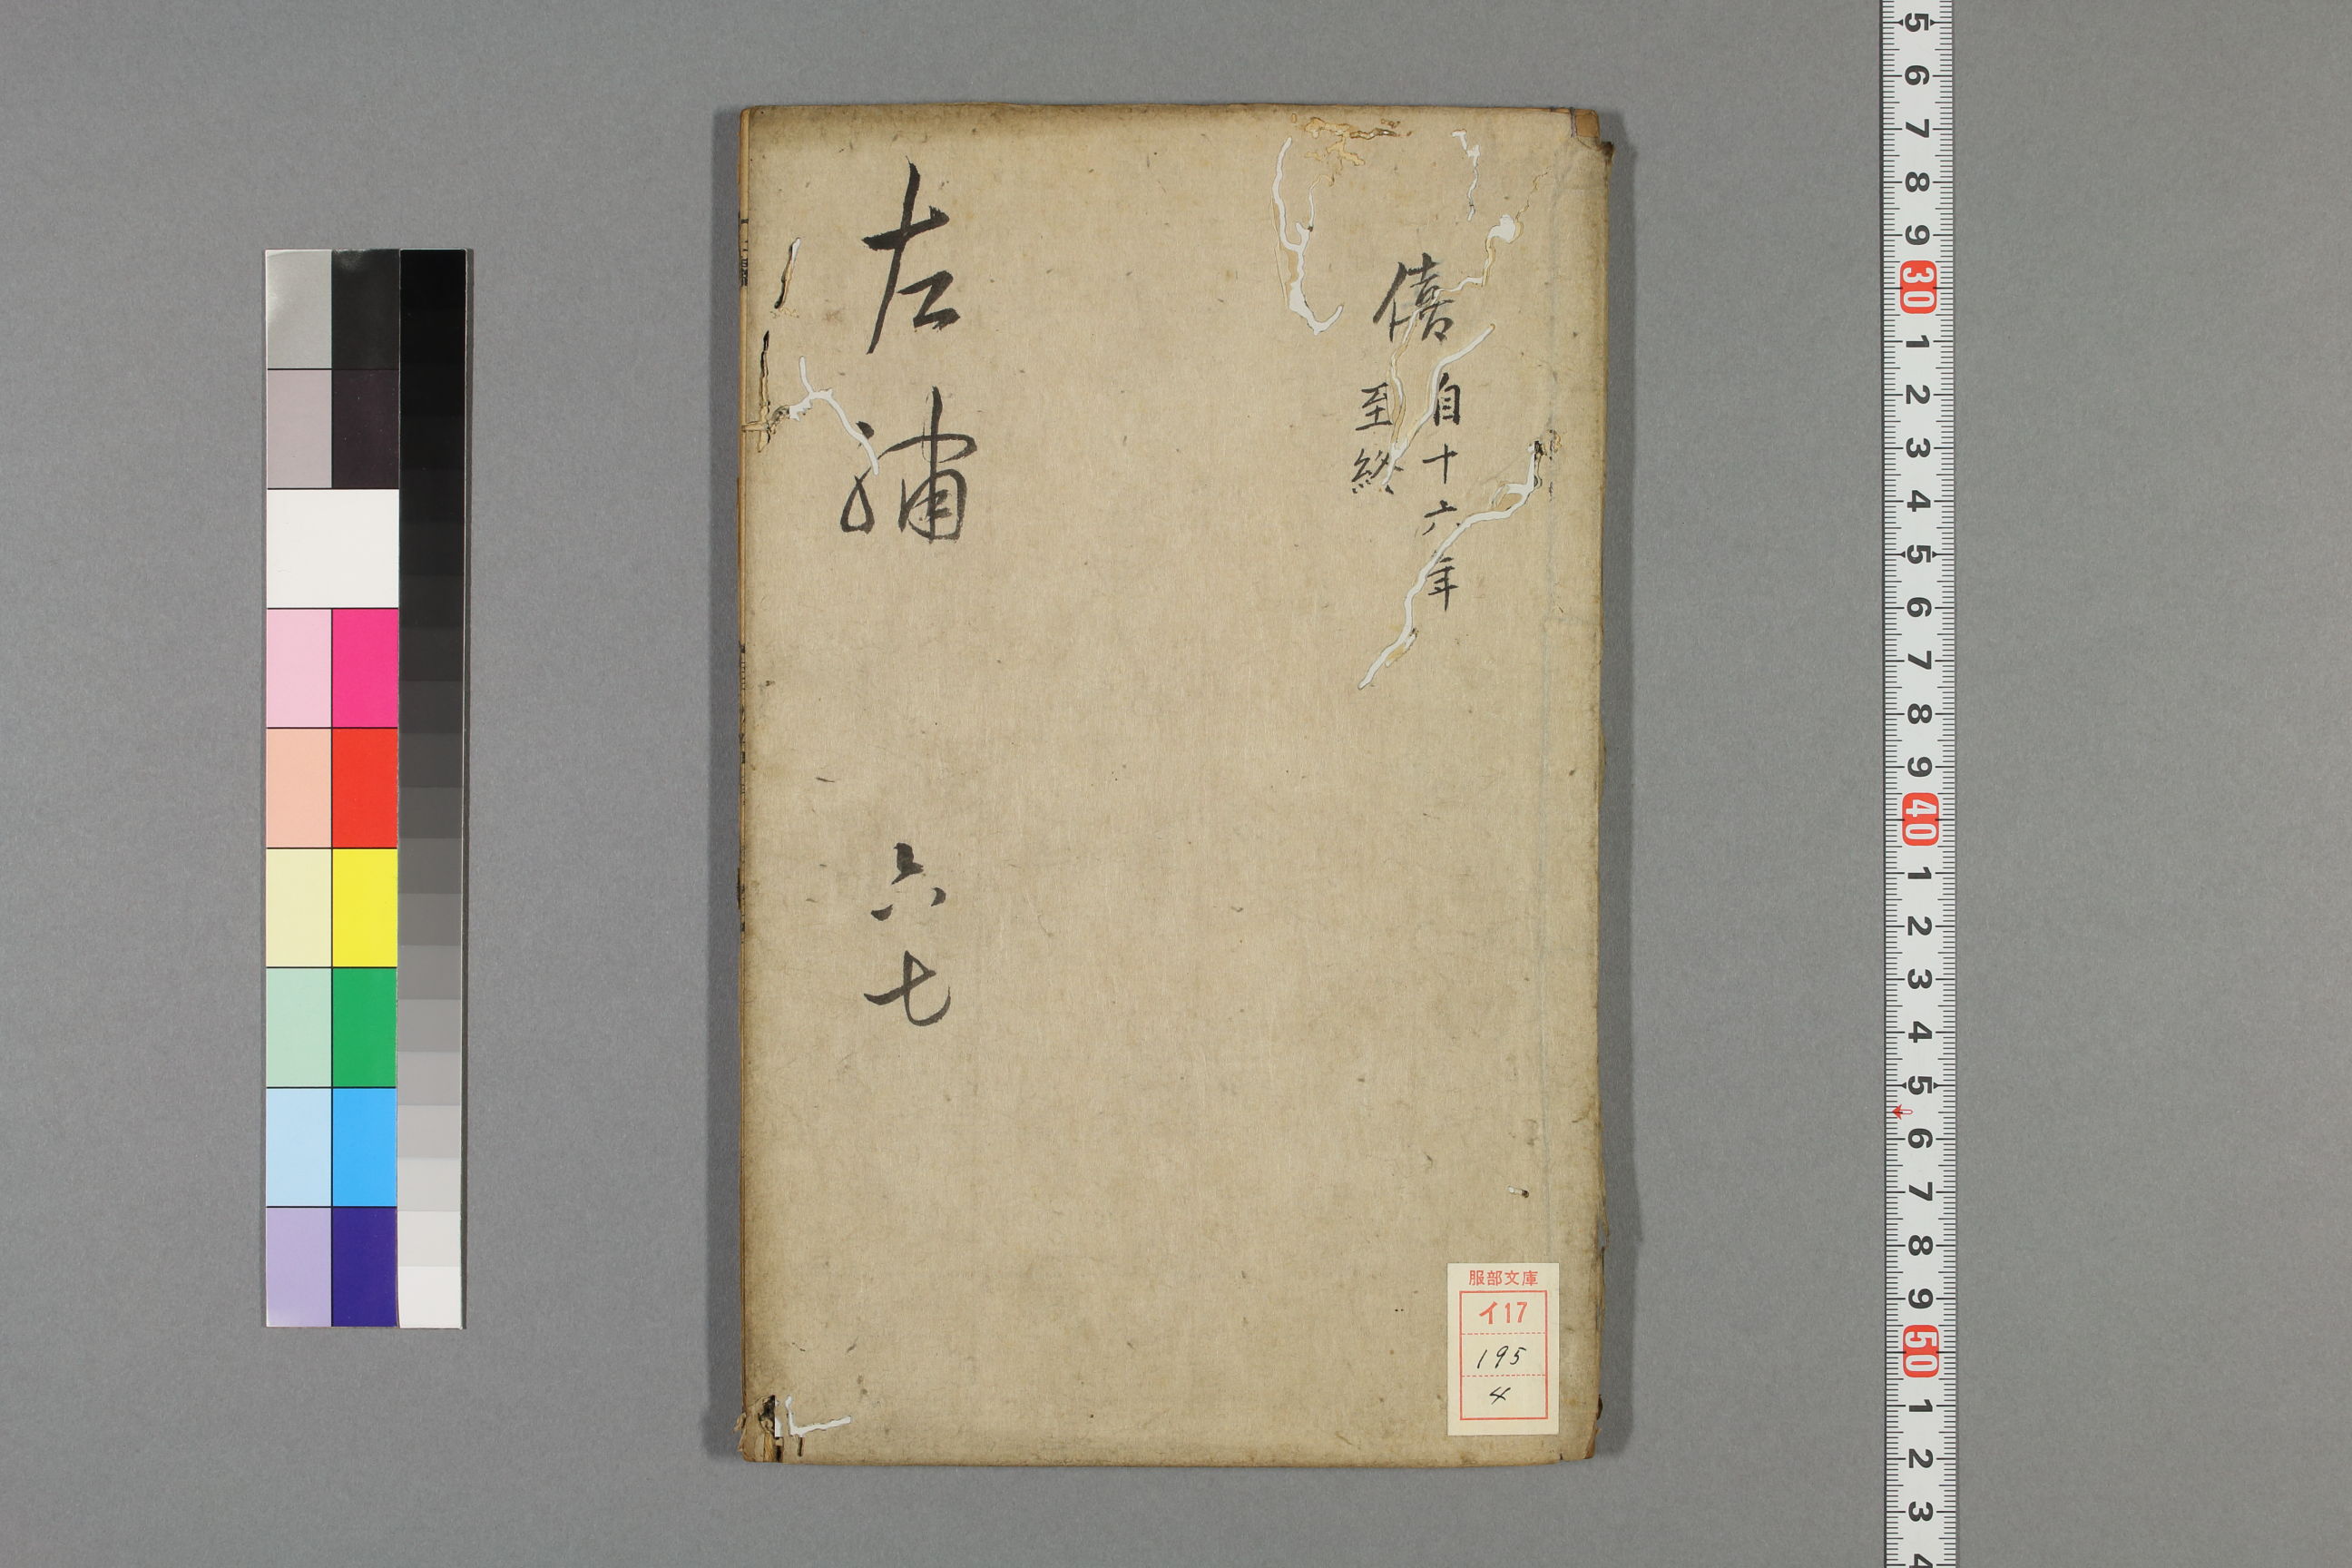 僖
自十六年
至終
左繡 六七
服部文庫
イ17
195
4
5 6 7 8 9 30 1 2 3 4 5 6 7 8 9 40 1 2 3 4 5 6 7 8 9 50 1 2 3 4